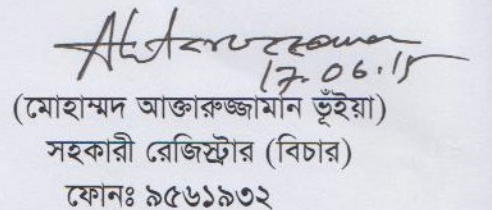 Aktaruzzaman
17.06.15
(মোহাম্মদ আক্তারুজ্জামান ভূঁইয়া)
সহকারী রেজিস্ট্রার (বিচার)
ফোনঃ ৯৫৬১৯৩২